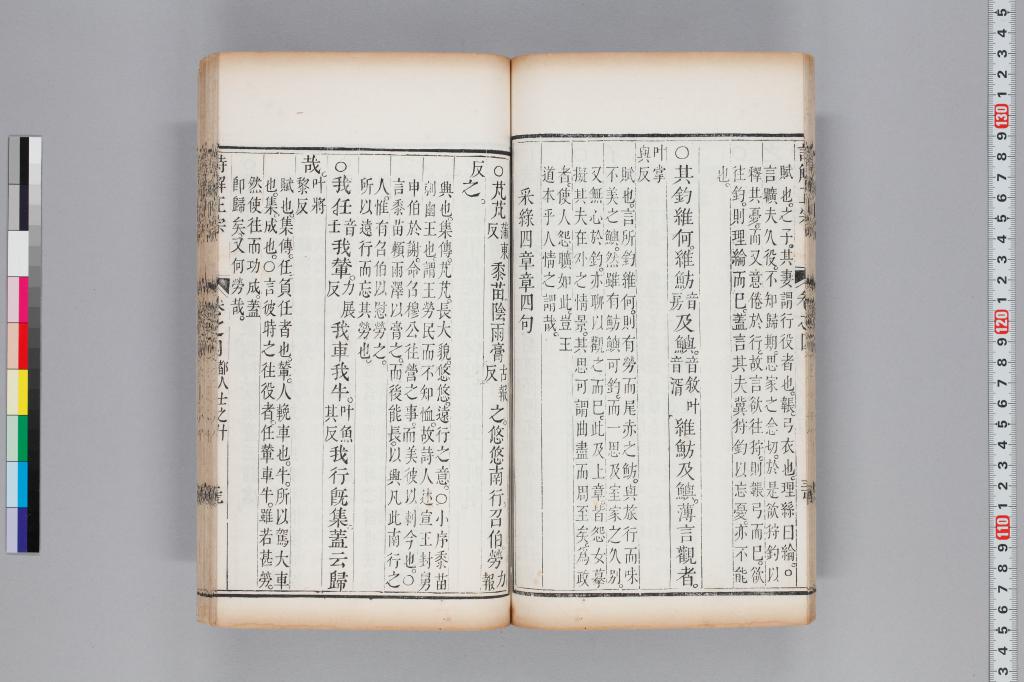 賦也。之子。其妻謂行役者也。韔弓衣也。理絲曰綸。○
言曠夫久役。不知歸期思家之念切。於是欲狩釣以
釋其憂。而又意倦於行。故言欲往狩。則韔弓而已。欲
往釣。則理綸而已。蓋言其夫冀狩釣以忘憂。亦不能
也。
○其釣維何。維魴音房及鱮。音敘叶音湑維魴及鱮。薄言觀者。
叶掌與反
賦也。言所釣維何。則有勞而尾赤之魴。與旅行而味
不美之鱮。然雖有魴鱮可釣。而一思及室家之久別。
又無心於釣。亦聊以觀之而已。此及上章皆怨女摹
擬其夫在外之情景。其思可謂曲盡而周至矣。為政
者。使人怨曠如此。豈王
道本乎人情之謂哉。
采綠四章章四句
○芃芃蒲東反黍苗陰雨膏古報反之。悠悠南行。召伯勞力報
反之。
興也。集傳。芃芃。長大貌。悠悠。遠行之意。○小序黍苗
刺幽王也。謂王勞民而不知恤。故詩人述宣王封舅
申伯於謝。命召穆公往營之事。而美彼以刺今也。○
言黍苗賴雨澤以膏之。而後能長。以興凡此南行之
人。惟有召伯以慰勞之。
所以遠行而忘其勞也。
○我任音壬我輦。力展反我車我牛。叶魚其反我行旣集蓋云歸
哉。叶將黎反
賦也。集傳。任。負任者也。輦。人輓車也。牛。所以駕大車
也。集。成也。○言彼時之往役者。任輦車牛。雖若甚勞。
然使往而功成。蓋
卽歸矣。又何勞哉。
詩解正宗 卷之四 都人士之什